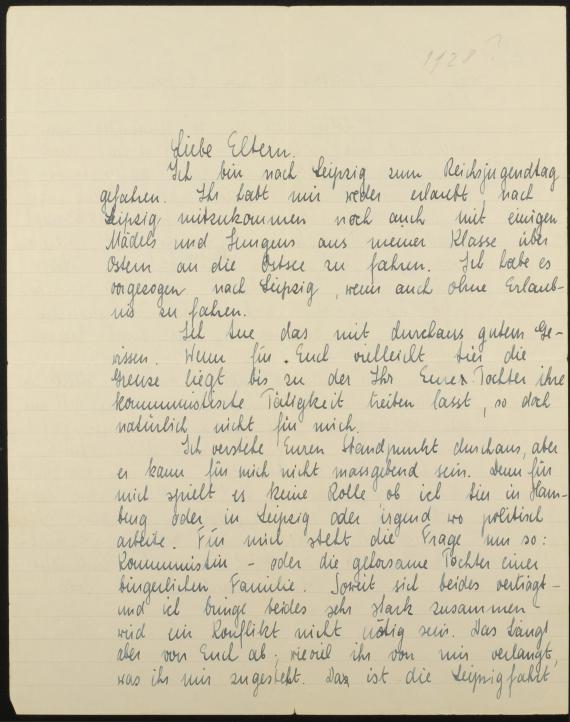 1928?
Liebe Eltern.
Ich bin nach Leipzig zum Reichsjugendtag
gefahren. Ihr habt mir weder erlaubt nach
Leipzig mitzukommen noch auch mit einigen
Mädels und Jungens aus meiner Klasse über
Ostern an die Ostsee zu fahren. Ich habe es
vorgezogen nach Leipzig, wenn auch ohne Erlaub-
nis zu fahren.
Ich tue das mit durchaus gutem Ge-
wissen. Wenn für Euch vielleicht hier die
Grenze liegt bis zu der Ihr Eurer Tochter ihre
kommunistische Tätigkeit treiben lasst, so doch
natürlich nicht für mich.
Ich verstehe Euren Standpunkt durchaus, aber
er kann für mich nicht massgebend sein. Denn für
mich spielt es keine Rolle ob ich hier in Ham-
burg oder in Leipzig oder irgend wo politisch
arbeite. Für mich steht die Frage nur so:
Kommunistin - oder die gehorsame Tochter einer
bürgerlichen Familie. Soweit sich beides verträgt -
und ich bringe beides sehr stark zusammen
wird ein Konflikt nicht nötig sein. Das hängt
aber von Euch ab, wieviel ihr von mir verlangt,
was ihr mir zugesteht. Das ist die Leipzigfahrt